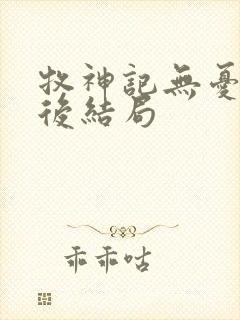 牧神記無憂
後結局
乖乖咕